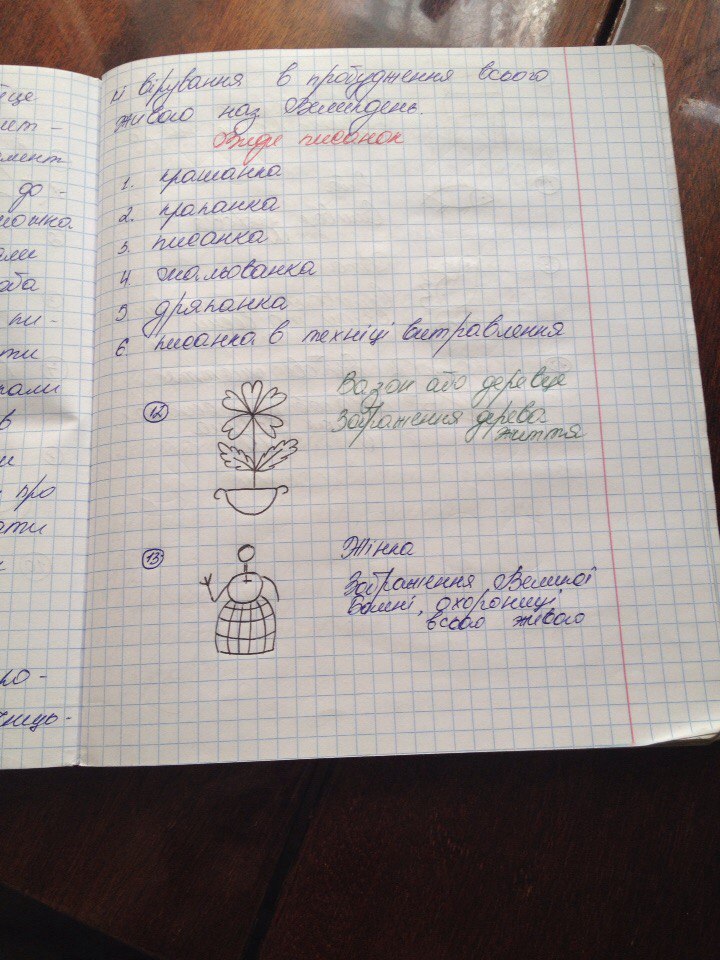 іще
мент
до-
ба
пи-
ти
пали
в
и
про
ати
ро-
ниць-
і вірування в пробудження всього
живого наз Великдень.
Види писанок
1. крашанка
2. крапанка
3. писанка
4 мальованка
5 дряпанка
6. писанка в техніці витравлення
12
Вазон або деревце
Зображення дерева
життя
13
Жінка
Зображення Великої
Богині, охорониці
всього живого